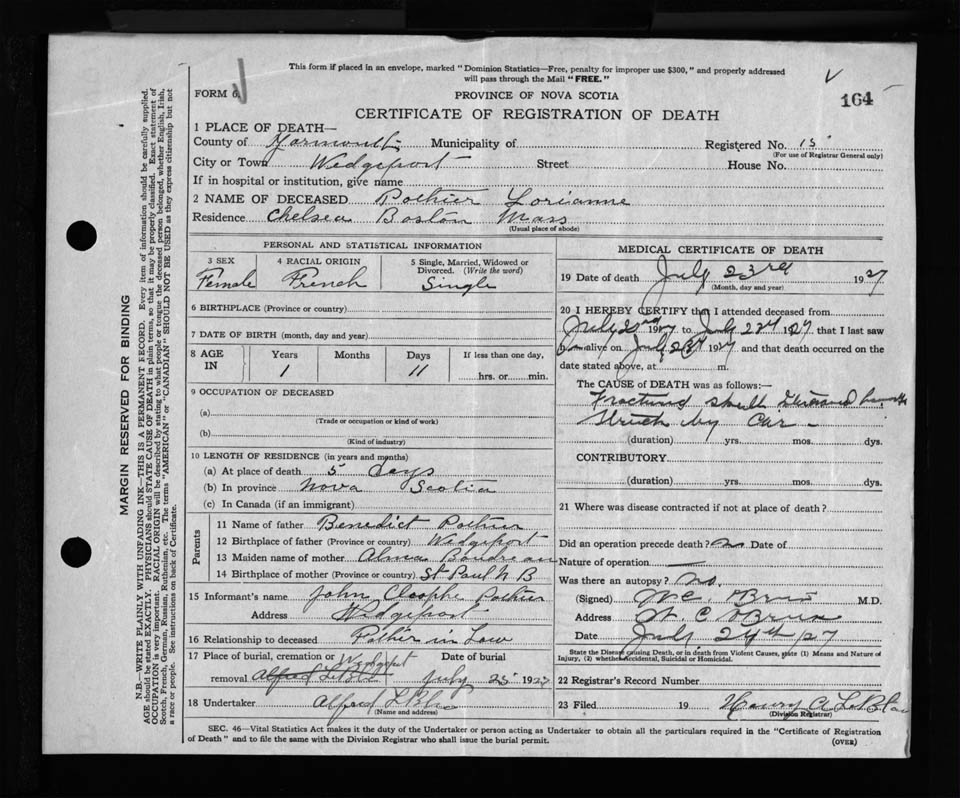 This form if placed in an envelope, marked "Dominion Statistics—Free, penalty for improper use $300," and properly addressed
will pass through the Mail "FREE."
FORM 6.
PROVINCE OF NOVA SCOTIA
164
CERTIFICATE OF REGISTRATION OF DEATH
1 PLACE OF DEATH—
County of Yarmouth Municipality of Registered No. 15
(For use of Registrar General only)
City or Town Wedgeport Street House No.
If in hospital or institution, give name
2 NAME OF DECEASED Pothier Lorianne
Residence Chelsea Boston Mass
(Usual place of abode)
PERSONAL AND STATISTICAL INFORMATION
3 SEX 4 RACIAL ORIGIN 5 Single, Married, Widowed or
Divorced. (Write the word)
Female French Single
6 BIRTHPLACE (Province or country)
7 DATE OF BIRTH (month, day and year)
8 AGE IN Years Months Days If less than one day,
1 11 hrs. or min.
9 OCCUPATION OF DECEASED
(a)
(Trade or occupation or kind of work)
(b)
(Kind of industry)
10 LENGTH OF RESIDENCE (in years and months)
(a) At place of death 5 days
(b) In province Nova Scotia
(c) In Canada (if an immigrant)
Parents
11 Name of father Benedict Pothier
12 Birthplace of father (Province or country) Wedgeport
13 Maiden name of mother Boudreau
14 Birthplace of mother (Province or country) St Paul N B
15 Informant's name John Cleophe Pothier
Address Wedgeport
16 Relationship to deceased in Law
17 Place of burial, cremation or Wedgeport Date of burial
removal Alfred LeBla July 25 1927
18 Undertaker Alfred LeBlanc
(Name and address)
MEDICAL CERTIFICATE OF DEATH
19 Date of death July 23rd 1927
(Month, day and year)
20 I HEREBY CERTIFY that I attended deceased from
July 23rd 1927 to July 23rd 1927 that I last saw
alive on July 23rd 1927 and that death occurred on the
date stated above, at m.
The CAUSE of DEATH was as follows:—
Fractured skull
Struck by Car -
(duration) yrs. mos. dys.
CONTRIBUTORY
(duration) yrs. mos. dys.
21 Where was disease contracted if not at place of death?
Did an operation precede death? no Date of
Nature of operation
Was there an autopsy? no.
(Signed) M.D.
Address
Date July 24th /27
State the Disease causing Death, or in death from Violent Causes, state (1) Means and Nature of
Injury, (2) whether Accidental, Suicidal or Homicidal.
22 Registrar's Record Number
23 Filed 19 Henry A LeBlanc
(Division Registrar)
SEC. 46—Vital Statistics Act makes it the duty of the Undertaker or person acting as Undertaker to obtain all the particulars required in the "Certificate of Registration
of Death" and to file the same with the Division Registrar who shall issue the burial permit.
(OVER)
MARGIN RESERVED FOR BINDING
N.B.—WRITE PLAINLY WITH UNFADING INK—THIS IS A PERMANENT RECORD. Every item of information should be carefully supplied.
AGE should be stated EXACTLY. PHYSICIANS should STATE CAUSE OF DEATH in plain terms, so that it may be properly classified. Exact statement of
OCCUPATION is very important. RACIAL ORIGIN will be described by stating to what people or tongue the deceased person belonged, whether English, Irish,
Scotch, French, German, Russian, Ruthenian, etc. The terms "AMERICAN" or "CANADIAN" SHOULD NOT BE USED as they express citizenship but not
a race or people. See instructions on back of Certificate.